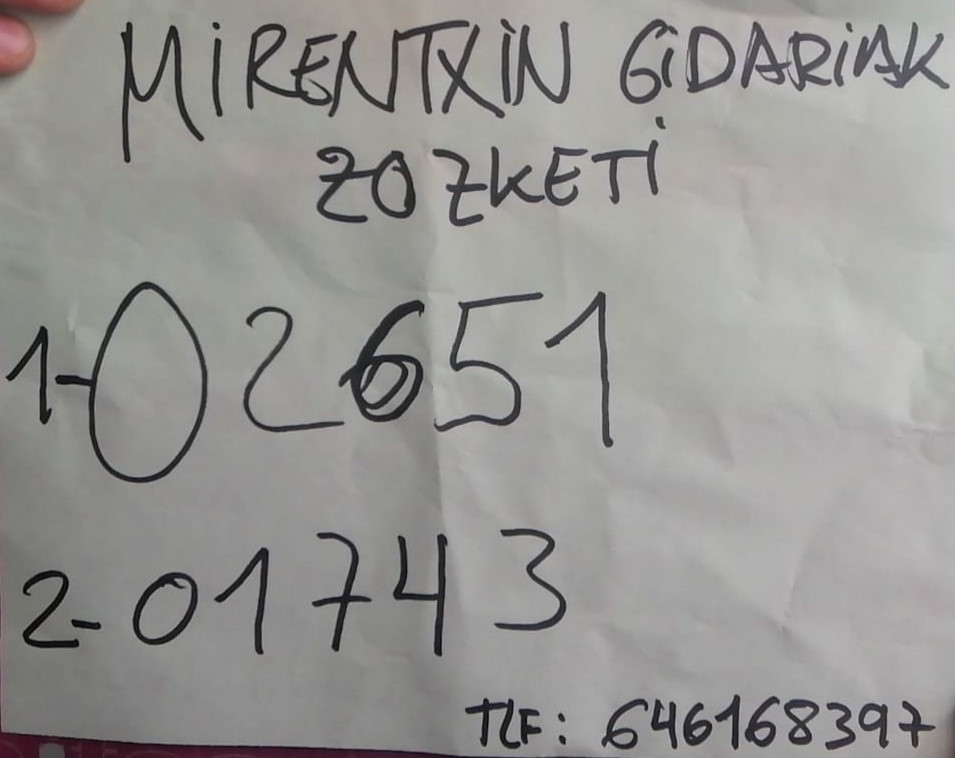 MIRENTXIN GIDARIAK
ZOZKETI
1-02651
2-01743
TLF: 646168397